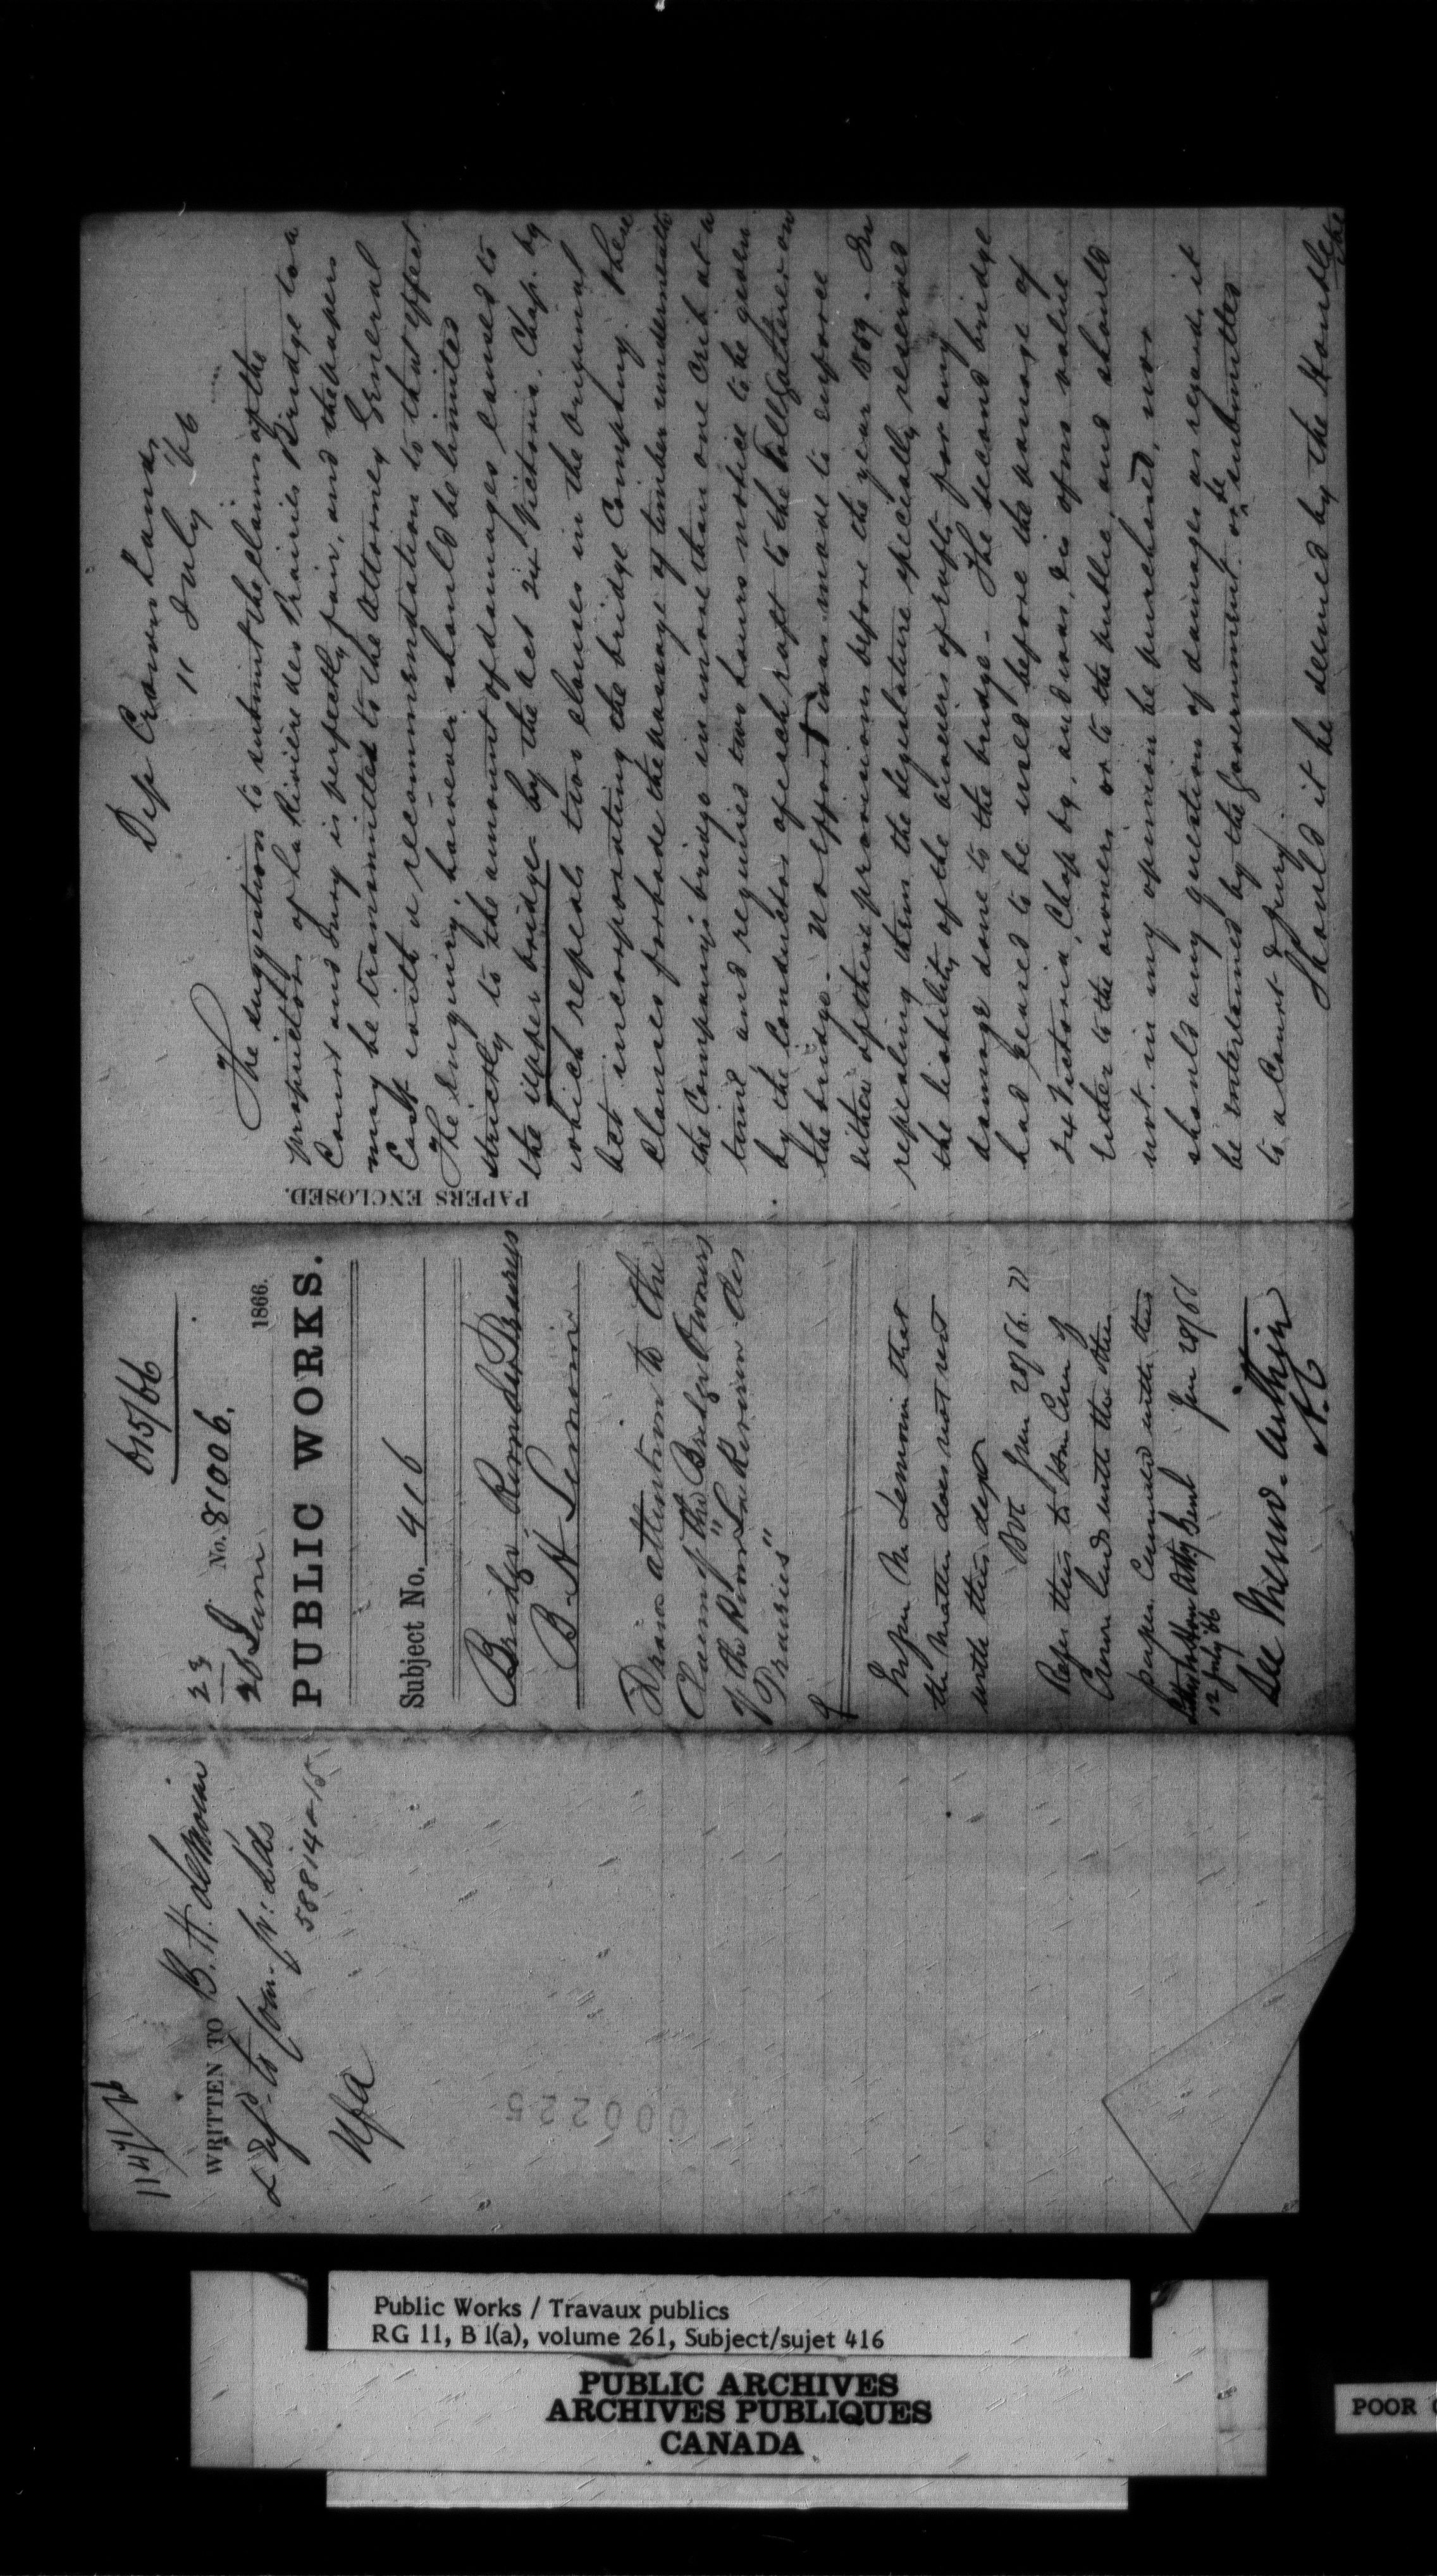 1147/66
WRITTEN TO B. H. Lemoine
& Dept to Com. Cr: Lds
58814 & 15
Mfa
000225
615/66
23
26 June No. 81006.
1866.
PUBLIC WORKS.
Subject No. 416
Bridge Riv des Prairies
B. H. Lemoine
Draws attention to the
Claim of the Bridge Owners
of the River "La Riviere des
Prairies"
Inform Mr Lemoine that
the matter does not rest
with this dept
Jun 28/66
Refer this to Hon Com of
Crown Lands with the other
papers Connected with this
Jun 28/66
Return Hon Atty Genl
12 July 66
See Minute within
A.C
PAPERS ENCLOSED.
Dep Crown Lands
11 July '66
The suggestion to submit the claim of the
proprietors of La Riviere des Prairies Bridge to a
Court and Jury is perfectly fair, and the papers
may be transmitted to the Attorney General
East with a recommendation to that effect.
The Enquiry, however, should be limited
strictly to the amount of damages caused to
the upper bridge by the act 24 Victoria, Chap. 69
which repeals two clauses in the original
act incorporating the bridge Company. These
clauses forbade the passage of timber underneath
the Company's bridge in more than one crib at a
time and required two hours notice to be given
by the conductor of each raft to the tollgatherer on
the bridge. No effort was made to enforce
either of these provisions before the year 1859. In
repealing them the legislature especially reserved
the liability of the owners of rafts for any
damage done to the bridge. The second bridge
had ceased to be used before the passage of
24 Victoria, Chap 69, and was, is of no value
either to the owners or to the public, and should
not in my opinion be purchased, nor
should any question of damages as regards it
be entertained by the Government or be submitted
to a Court & Jury.
Should it be deemed by the Honble
the
Public Works / Travaux publics
RG 11, B 1(a), volume 261, Subject/sujet 416
PUBLIC ARCHIVES
ARCHIVES PUBLIQUES
CANADA
POOR